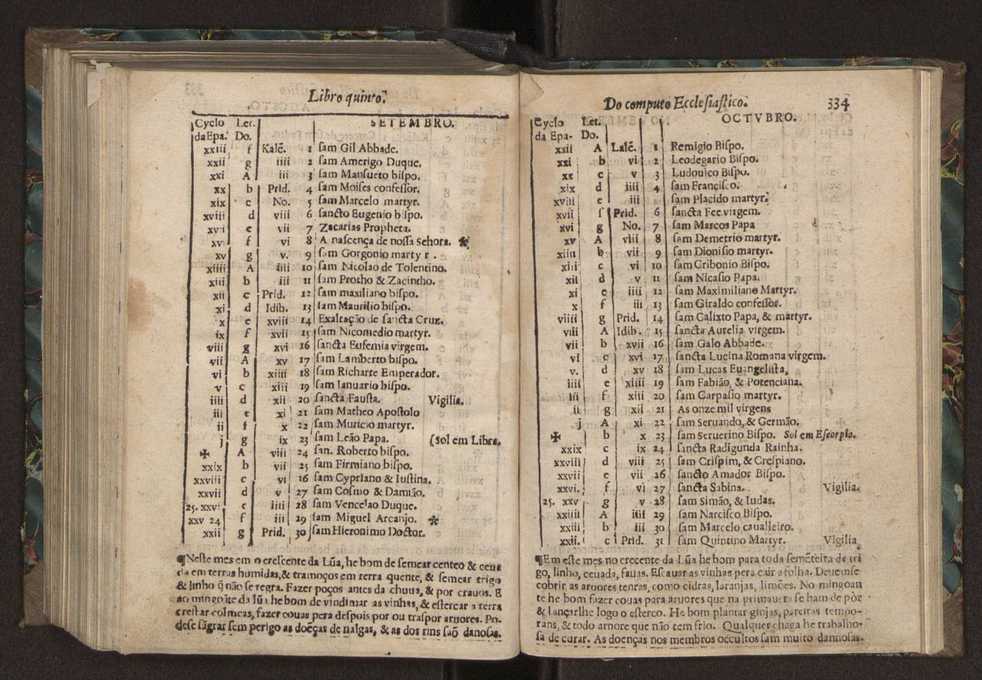 Libro quinto.
Cyclo Let. SETEMBRO.
da Epa. Do.
xxiii f Kalē. 1 sam Gil Abbade.
xxii g iiii 2 sam Amerigo Duque.
xxi A iii 3 sam Mansueto bispo.
xx b Prid. 4 sam Moises confessor.
xix c No. 5 sam Marcelo martyr.
xviii d viii 6 sancto Eugenio bispo.
xvii e vii 7 Zacarias Propheta.
xvi f vi 8 A nascença de nossa Senhora. ✠
xv g v. 9 sam Gorgonio martyr.
xiiii A iiii 10 sam Nicolao de Tolentino.
xiii b iii 11 sam Protho & Zacintho.
xii c Prid. 12 sam maxiliano bispo.
xi d Idib. 13 sam Maurilio bispo.
x e xviii 14 Exaltação de sancta Cruz.
ix f xvii 15 sam Nicomedio martyr.
viii g xvi 16 sancta Eufemia virgem.
vii A xv 17 sam Lamberto bispo.
vi b xiiii 18 sam Richarte Emperador.
v c xiii 19 sam Ianuario bispo.
iiii d xii 20 sancta Fausta. Vigilia.
iii e xi 21 sam Matheo Apostolo
ii f x 22 sam Muricio martyr.
j g ix 23 sam Leão Papa. (sol em Libra.
✠ A viii 24 san. Roberto bispo.
xxix b vii 25 sam Firmiano bispo.
xxviii c vi 26 sam Cypriano & Iustina.
xxvii d v 27 sam Cosmo & Damião.
25. xxvi e iiii 28 sam Venceslao Duque.
xxv 24 f iii 29 sam Miguel Arcanjo. ✠
xxii g Prid. 30 sam Hieronimo Doctor.
¶Neste mes em o crescente da Lũa, he bom de semear centeo & ceua
da em terras humidas, & tramoços em terra quente, & semear trigo
& linho q̃ não se regra. Fazer poços antes da chuua, & por crauos. E
ao mingoãte da lũa he bom de vindimar as vinhas, & estercar a terra
crestar colmeas, fazer couas pera despois por ou traspor aruores. Po-
dese sãgrar sem perigo as doẽças de nalgas, & as dos rins saõ danosas.
Do computo Ecclesiastico. 334
Cyclo Let. OCTVBRO.
da Epa- Do.
xxii A Lalē. 1 Remigio Bispo.
xxi b vi 2 Leodegario Bispo.
xx c v 3 Ludouico Bispo.
xix d iiii 4 sam Francisco.
xviii e iii 5 sam Placido martyr.
xvii f Prid. 6 sancta Fee virgem.
xvi g No. 7 sam Marcos Papa
xv A viii 8 sam Demetrio martyr.
xiiii b vii 9 sam Dionisio martyr.
xiii c vi 10 sam Cribonio Bispo.
xii d v 11 sam Nicasio Papa.
xi e iiii 12 sam Maximiliano Martyr.
x f iii 13 sam Giraldo confessor.
viiii g Prid. 14 sam Calixto Papa, & martyr.
viii A Idib. 15 sancta Aurelia virgem.
vii b xvii 16 sam Galo Abbade.
vi c xvi 17 sancta Lucina Romana virgem.
v. d xv 18 sam Lucas Euangelista,
iiii e xiiii 19 sam Fabião, & Potenciana.
iii f xiii 20 sam Garpasio martyr.
ii g xii 21 As onze mil virgens
j A xi 22 sam Seruando, & Germão.
✠ b x 23 sam Seruerino Bispo. Sol em Escorpio.
xxix c ix 24 sancta Radigunda Rainha.
xxviii d viii 25 sam Crispim, & Crespiano.
xxvii e vii 26 sancto Amador Bispo.
xxvi. f vi 27 sancta Sabina. Vigilia.
25. xxv g v 28 sam Simão, & Iudas.
xxiiii A iiii 29 sam Narcisco Bispo.
xxiii b iii 30 sam Marcelo caualleiro.
xxii. c Prid. 31 sam Quintino Martyr. Vigilia
¶Em este mes no crecente da Lũa he bom para toda semẽteira de tri
go, linho, ceuada, fauas. Escauar as vinhas pera cair a folha. Deuemse
cobrir as aruores tenras, como cidras, laranjas, limões. No mingoan
te he bom fazer couas para aruores que na primauera se ham de pòr
& lançarlhe logo o esterco. He bom plantar ginjas, pareiras tempo-
rans, & todo arnore que não tem frio. Qualquer chaga he trabalho-
sa de curar. As doenças nos membros occultos sam muito dannosas.